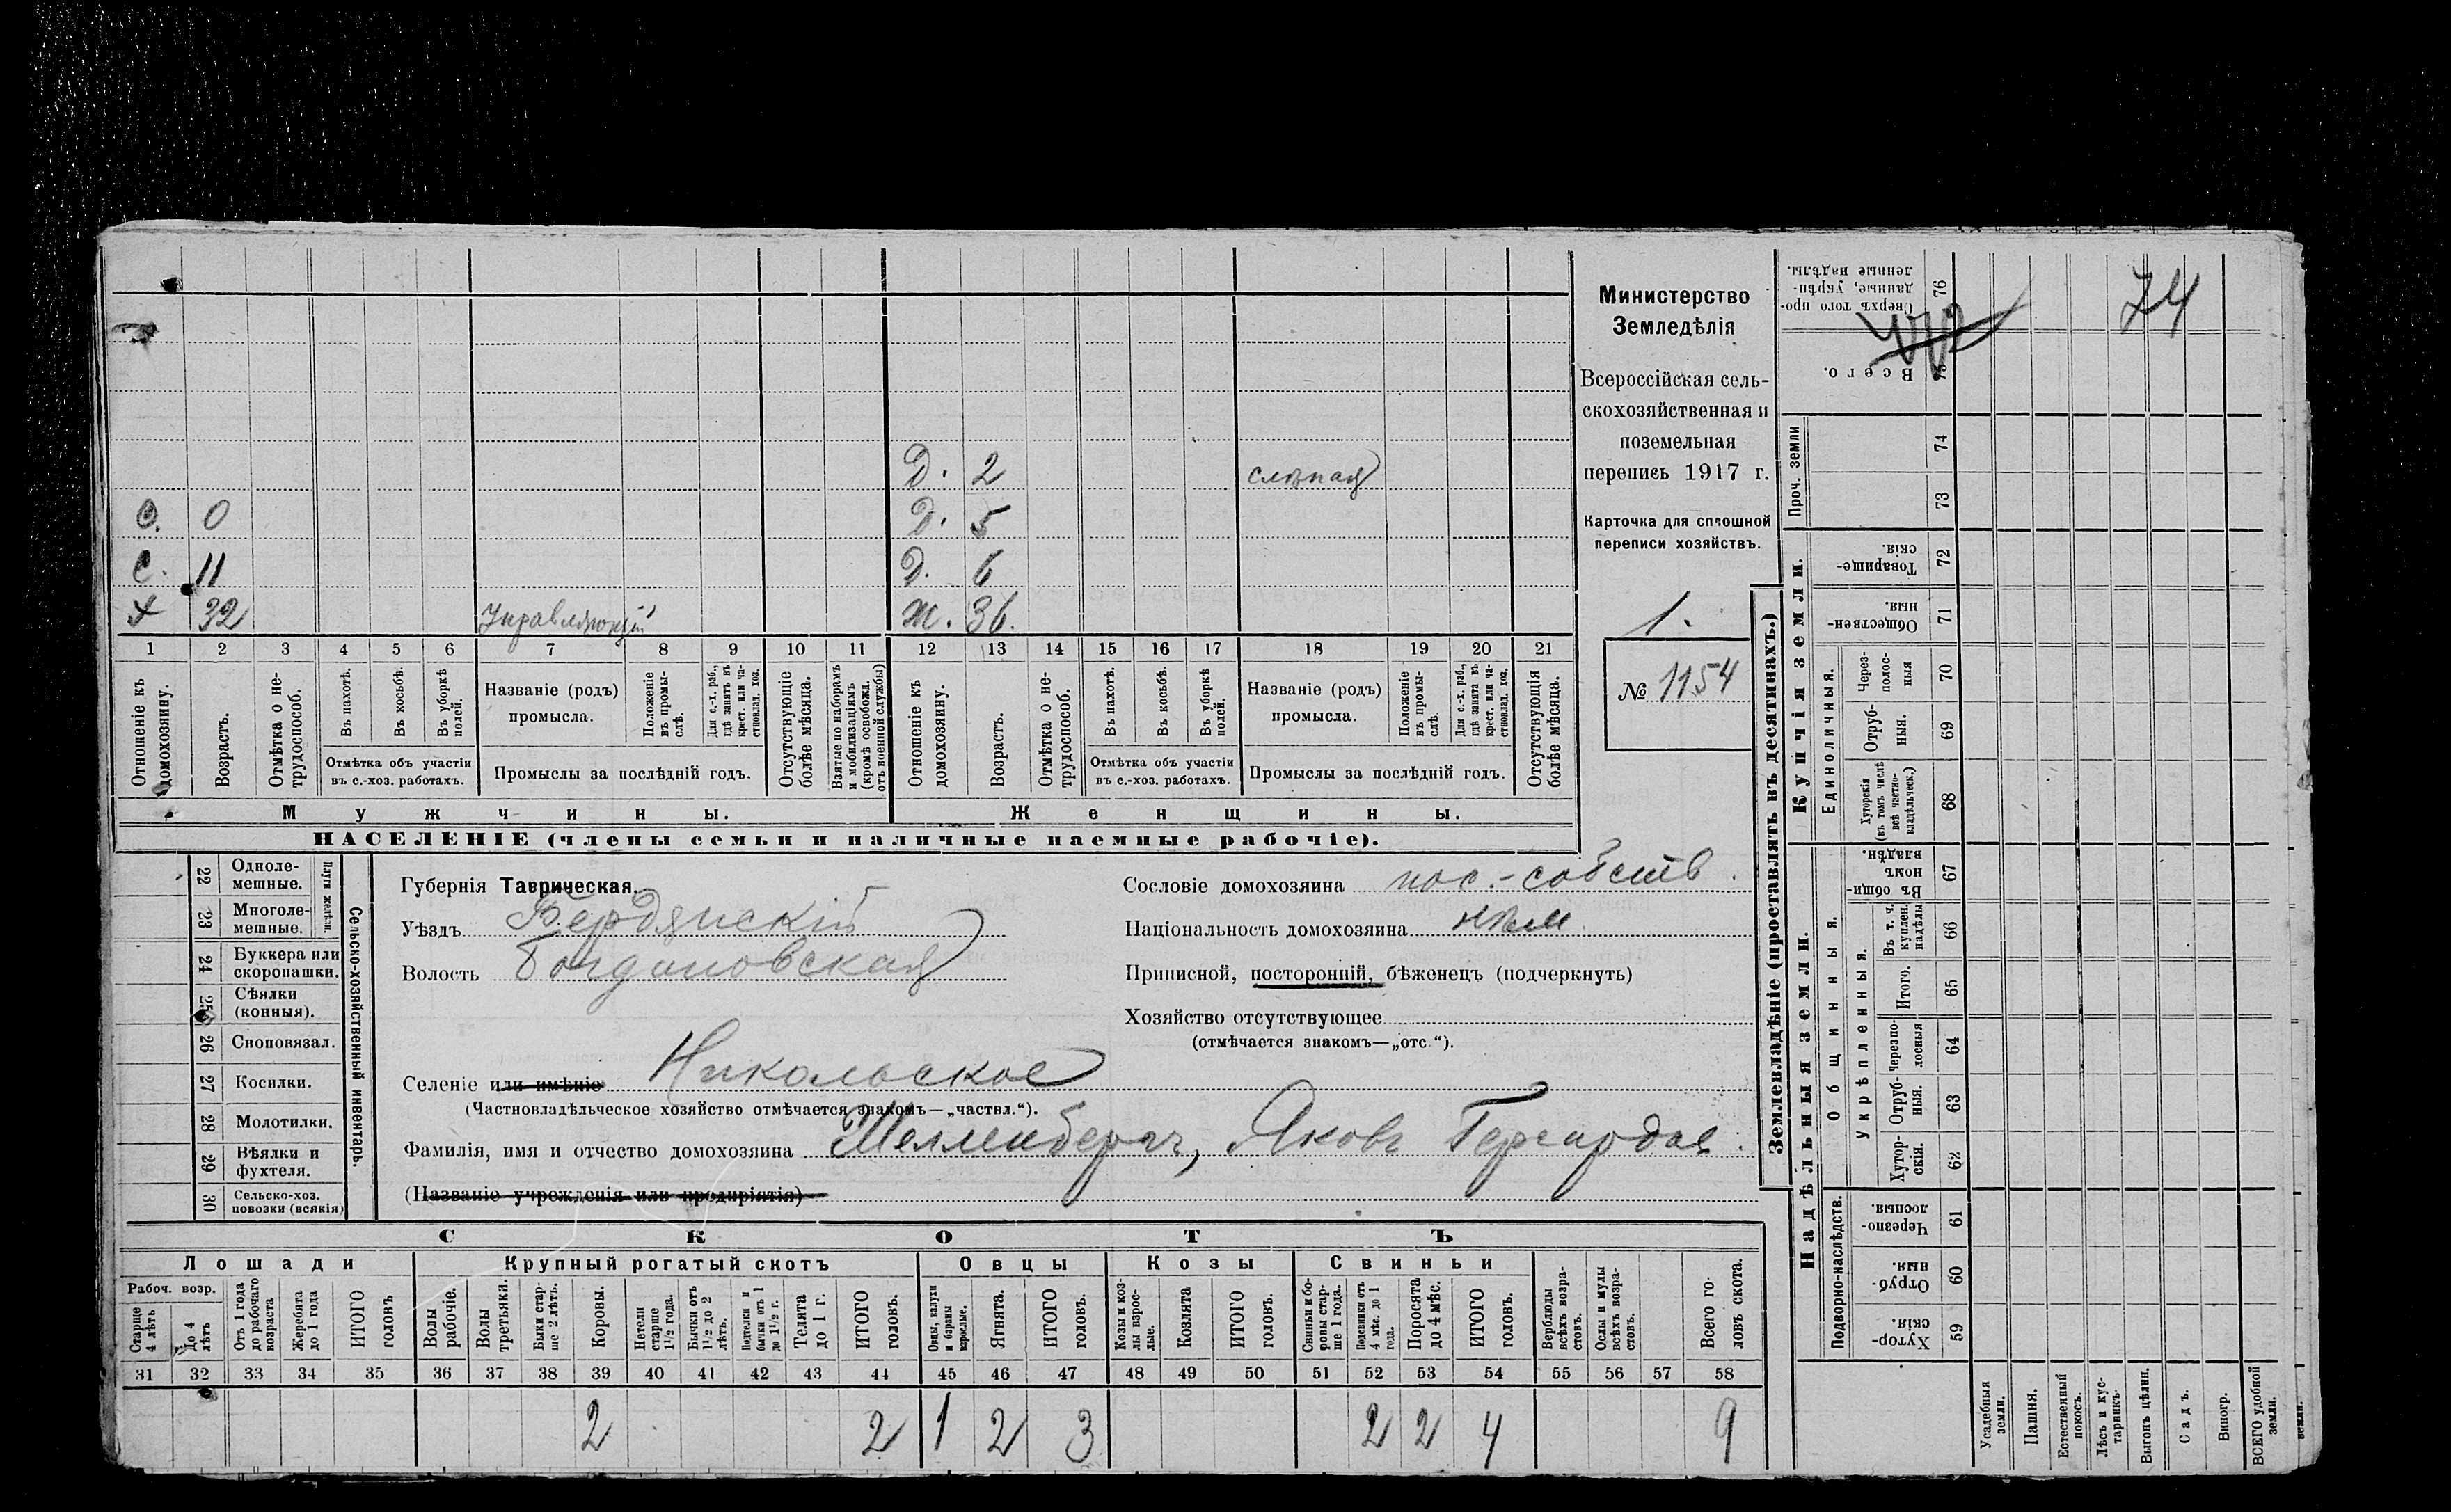 74
Министерство
Земледѣлія
Всероссійская сель-
скохозяйственная и
поземельная
перепись 1917 г.
Карточка для сплошной
переписи хозяйствъ.
1.
№ 1154
Д. 2 слѣпая
О. 0 Д. 5
С. 11 Д. 6
Х 32 Управляющій Ж. 36.
1 2 3 4 5 6 7 8 9 10 11 12 13 14 15 16 17 18 19 20 21
Отношеніе къ домохозяину.
Возрастъ.
Отмѣтка о не-трудоспособ.
Въ пахотѣ.
Въ косьбѣ.
Въ уборкѣ полей.
Отмѣтка объ участіи
въ с.-хоз. работахъ.
Названіе (родъ)
промысла.
Положеніе въ промы-слѣ.
Для с.-х. раб., гдѣ занятъ въ крест. или ча-стновлад. хоз.
Промыслы за послѣдній годъ.
Отсутствующіе болѣе мѣсяца.
Взятые по наборамъ и мобилизаціямъ (кромѣ освобожд. отъ военной службы)
Отношеніе къ домохозяину.
Возрастъ.
Отмѣтка о не-трудоспособ.
Въ пахотѣ.
Въ косьбѣ.
Въ уборкѣ полей.
Отмѣтка объ участіи
въ с.-хоз. работахъ.
Названіе (родъ)
промысла.
Положеніе въ промы-слѣ.
Для с.-х. раб., гдѣ занята въ крест. или ча-стновлад. хоз.
Промыслы за послѣдній годъ.
Отсутствующія болѣе мѣсяца.
Мужчины. Женщины.
НАСЕЛЕНІЕ (члены семьи и наличные наемные рабочіе).
22 Одноле-мешные.
23 Многоле-мешные.
Плуги желѣзн.
24 Буккера или скоропашки.
25 Сѣялки (конныя).
26 Сноповязал.
27 Косилки.
28 Молотилки.
29 Вѣялки и фухтеля.
30 Сельско-хоз. повозки (всякія)
Сельско-хозяйственный инвентарь.
Губернія Таврическая.
Уѣздъ Бердянскій
Волость Богдановская
Сословіе домохозяина пос.-собств.
Національность домохозяина нѣм.
Приписной, посторонній, бѣженецъ (подчеркнуть)
Хозяйство отсутствующее
(отмѣчается знакомъ—„отс.“).
Селеніе или имѣніе Никольское
(Частновладѣльческое хозяйство отмѣчается знакомъ—„частвл.“).
Фамилія, имя и отчество домохозяина Шелленбергъ, Яковъ Гергардов.
(Названіе учрежденія или предпріятія)
СКОТЪ
Лошади Крупный рогатый скотъ Овцы Козы Свиньи
Рабоч. возр.
Старше 4 лѣтъ
До 4 лѣтъ
Отъ 1 года до рабочаго возраста
Жеребята до 1 года
ИТОГО головъ
Волы рабочіе.
Волы третьяки.
Быки стар-ше 2 лѣтъ.
Коровы.
Нетели старше 1½ года.
Бычки отъ 1½ до 2 лѣтъ.
Подтелки и бычки отъ 1 до 1½ г.
Телята до 1 г.
ИТОГО головъ.
Овцы, валухи и бараны взрослые.
Ягнята.
ИТОГО головъ.
Козы и коз-лы взрос-лые.
Козлята
ИТОГО головъ.
Свиньи и бо-ровы стар-ше 1 года.
Подсвинки отъ 4 мѣс. до 1 года.
Поросята до 4 мѣс.
ИТОГО головъ.
Верблюды всѣхъ возра-стовъ.
Ослы и мулы всѣхъ возра-стовъ.
Всего го-ловъ скота.
31 32 33 34 35 36 37 38 39 40 41 42 43 44 45 46 47 48 49 50 51 52 53 54 55 56 57 58
2 2 1 2 3 2 2 4 9
Землевладѣніе (проставлять въ десятинахъ.)
Надѣльныя земли. Купчія земли.
Подворно-наслѣдств.
Общинныя.
Укрѣпленныя.
Единоличныя.
Проч. земли
Сверхъ того про-данные, укрѣп-ленные надѣлы. 76
Всего. 75
74
73
Товарище-скія. 72
Обществен-ныя. 71
Через-полос-ныя 70
Отруб-ныя. 69
Хуторскія (въ томъ числѣ всѣ частно-владѣльческ.) 68
Въ общин-номъ владѣн. 67
Въ т. ч. куплен. надѣлы 66
Итого. 65
Черезпо-лосныя 64
Отруб-ныя. 63
Хутор-скія. 62
Черезпо-лосныя. 61
Отруб-ныя. 60
Хутор-скія. 59
Усадебныя земли.
Пашня.
Естественный покосъ.
Лѣсъ и кус-тарникъ.
Выгонъ цѣлин.
Садъ.
Виногр.
ВСЕГО удобной земли.